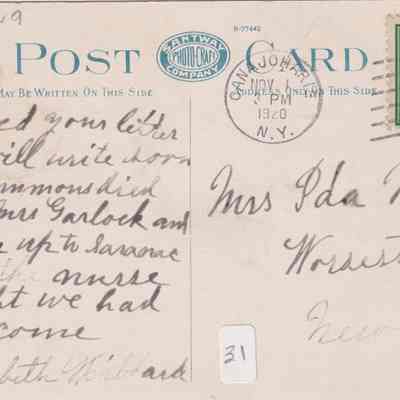 29
R-97442
POST CARD
SANTWAY
PHOTO-CRAFT
COMPANY
MAY BE WRITTEN ON THIS SIDE
ADDRESS UNDER THIS
CANAJOHARIE
NOV
PM
1920
N.Y.
ed your letter
will write soon
immons died
Mrs Garlock and
up to Saranac
the nurse
ht we had
come
beth Hibbard
Mrs Ida
Worsest
New
31